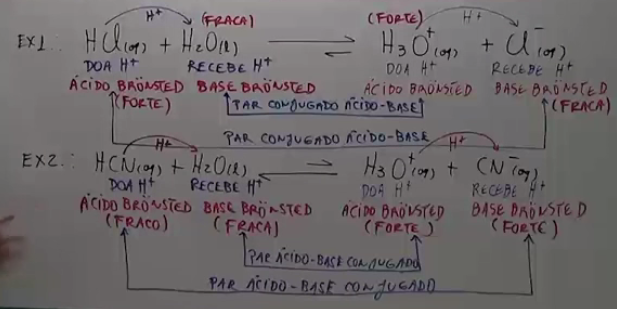 H+ (FRACA) (FORTE) H+
EX1.: HCl(aq) + H2O(l) ⇌ H3O+(aq) + Cl-(aq)
DOA H+ RECEBE H+ DOA H+ RECEBE H+
ÁCIDO BRÖNSTED BASE BRÖNSTED ÁCIDO BRÖNSTED BASE BRÖNSTED
(FORTE) PAR CONJUGADO ÁCIDO-BASE (FRACA)
PAR CONJUGADO ÁCIDO-BASE
H+ H+
EX2.: HCN(aq) + H2O(l) ⇌ H3O+(aq) + CN-(aq)
DOA H+ RECEBE H+ DOA H+ RECEBE H+
ÁCIDO BRÖNSTED BASE BRÖNSTED ÁCIDO BRÖNSTED BASE BRÖNSTED
(FRACO) (FRACA) (FORTE) (FORTE)
PAR ÁCIDO-BASE CONJUGADO
PAR ÁCIDO-BASE CONJUGADO